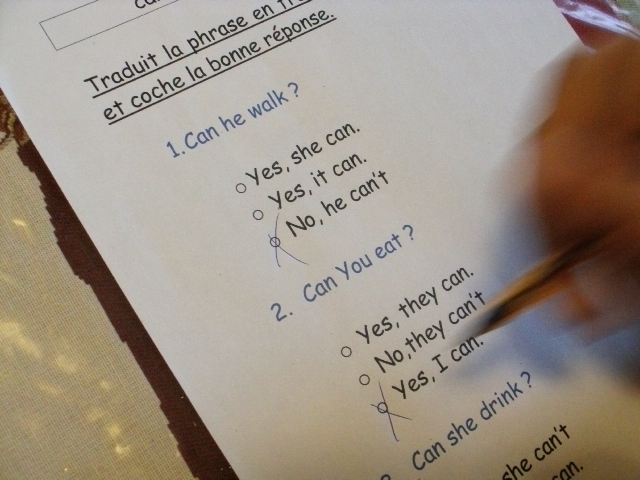 Traduit la phrase en
et coche la bonne réponse.
1.Can he walk ?
Yes, she can.
Yes, it can.
No, he can't
2. Can You eat ?
Yes, they can.
No,they can't
Yes, I can.
Can she drink ?
she can't
can.